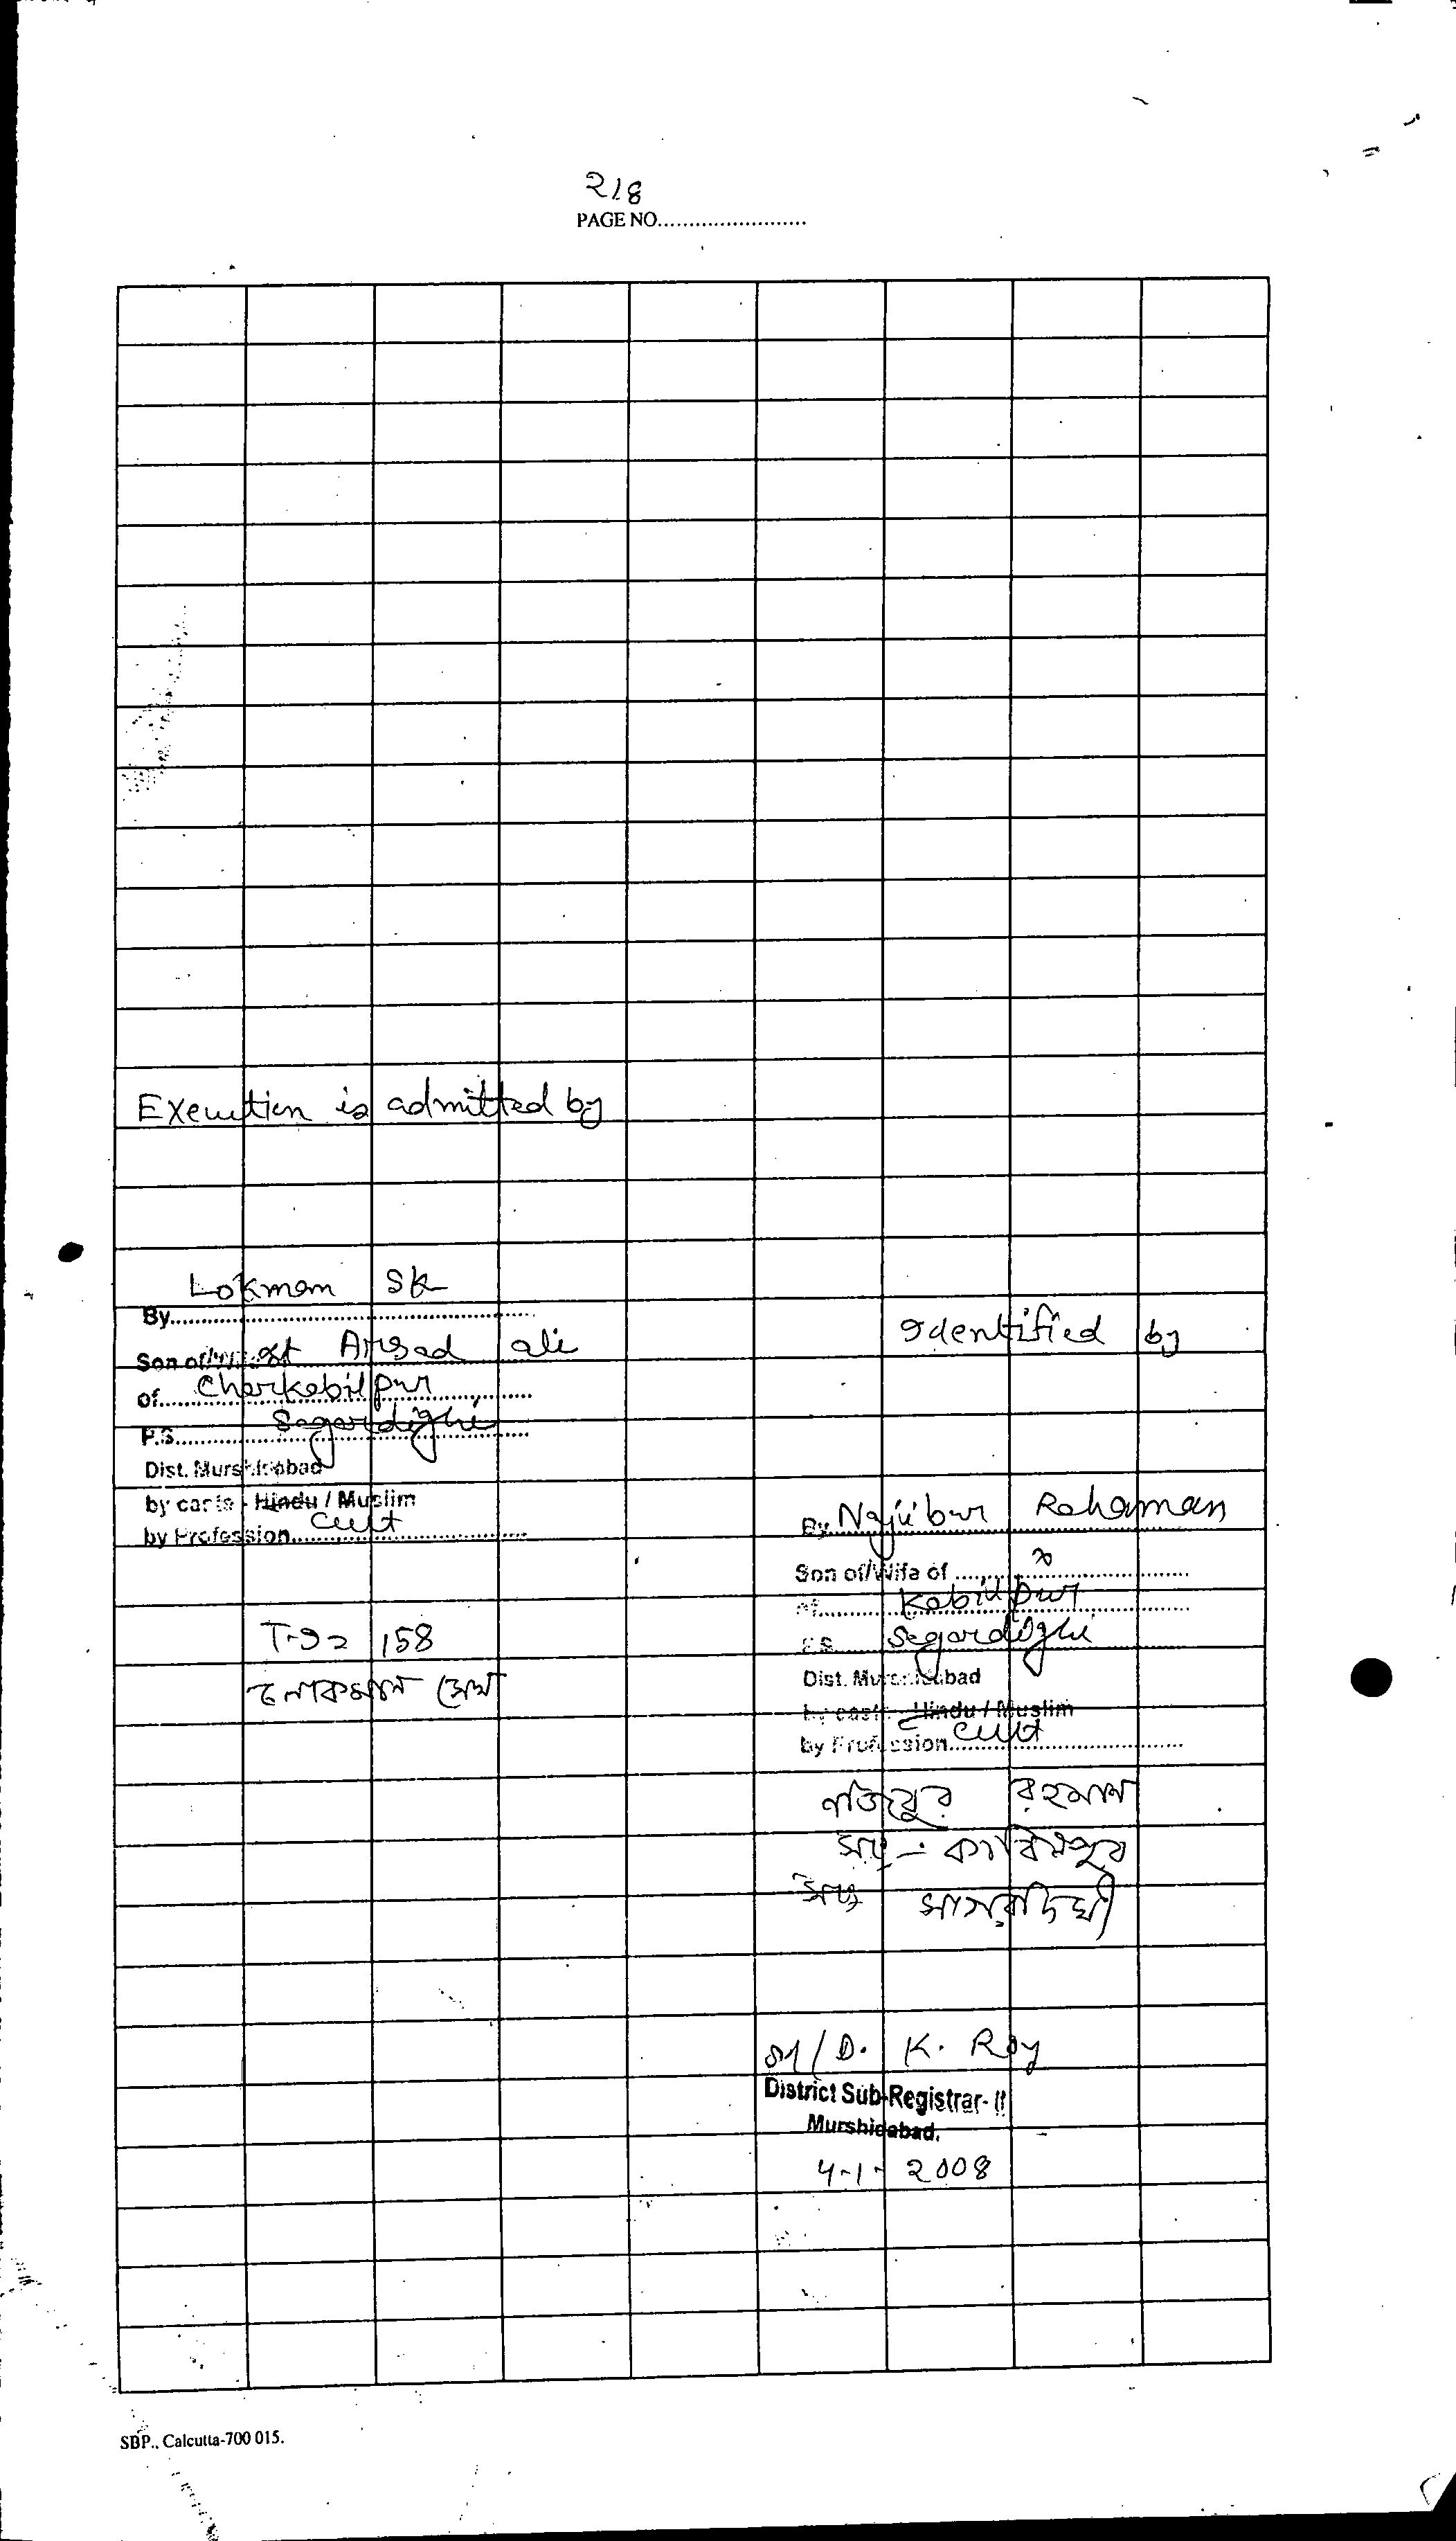 218
PAGE NO.........................
Execution is admitted by
Lokman Sk
By.........................
Son of Arsad ali
of Charkabilpur
P.S. Sagardighi
Dist. Murshidabad
by caste - Hindu / Muslim
by Profession Cult
T-92 158
লোকমান সেখ
Identified by
By Najibur Rahaman
Son of/Wife of x
of Kabilpur
P.S. Sagardighi
Dist. Murshidabad
by caste Hindu / Muslim
by Profession Cult
নজিবুর রহমান
সাং - কাবিলপুর
সাগরদিঘী
D. K. Roy
District Sub-Registrar- II
Murshidabad.
4-1-2008
SBP., Calcutta-700 015.